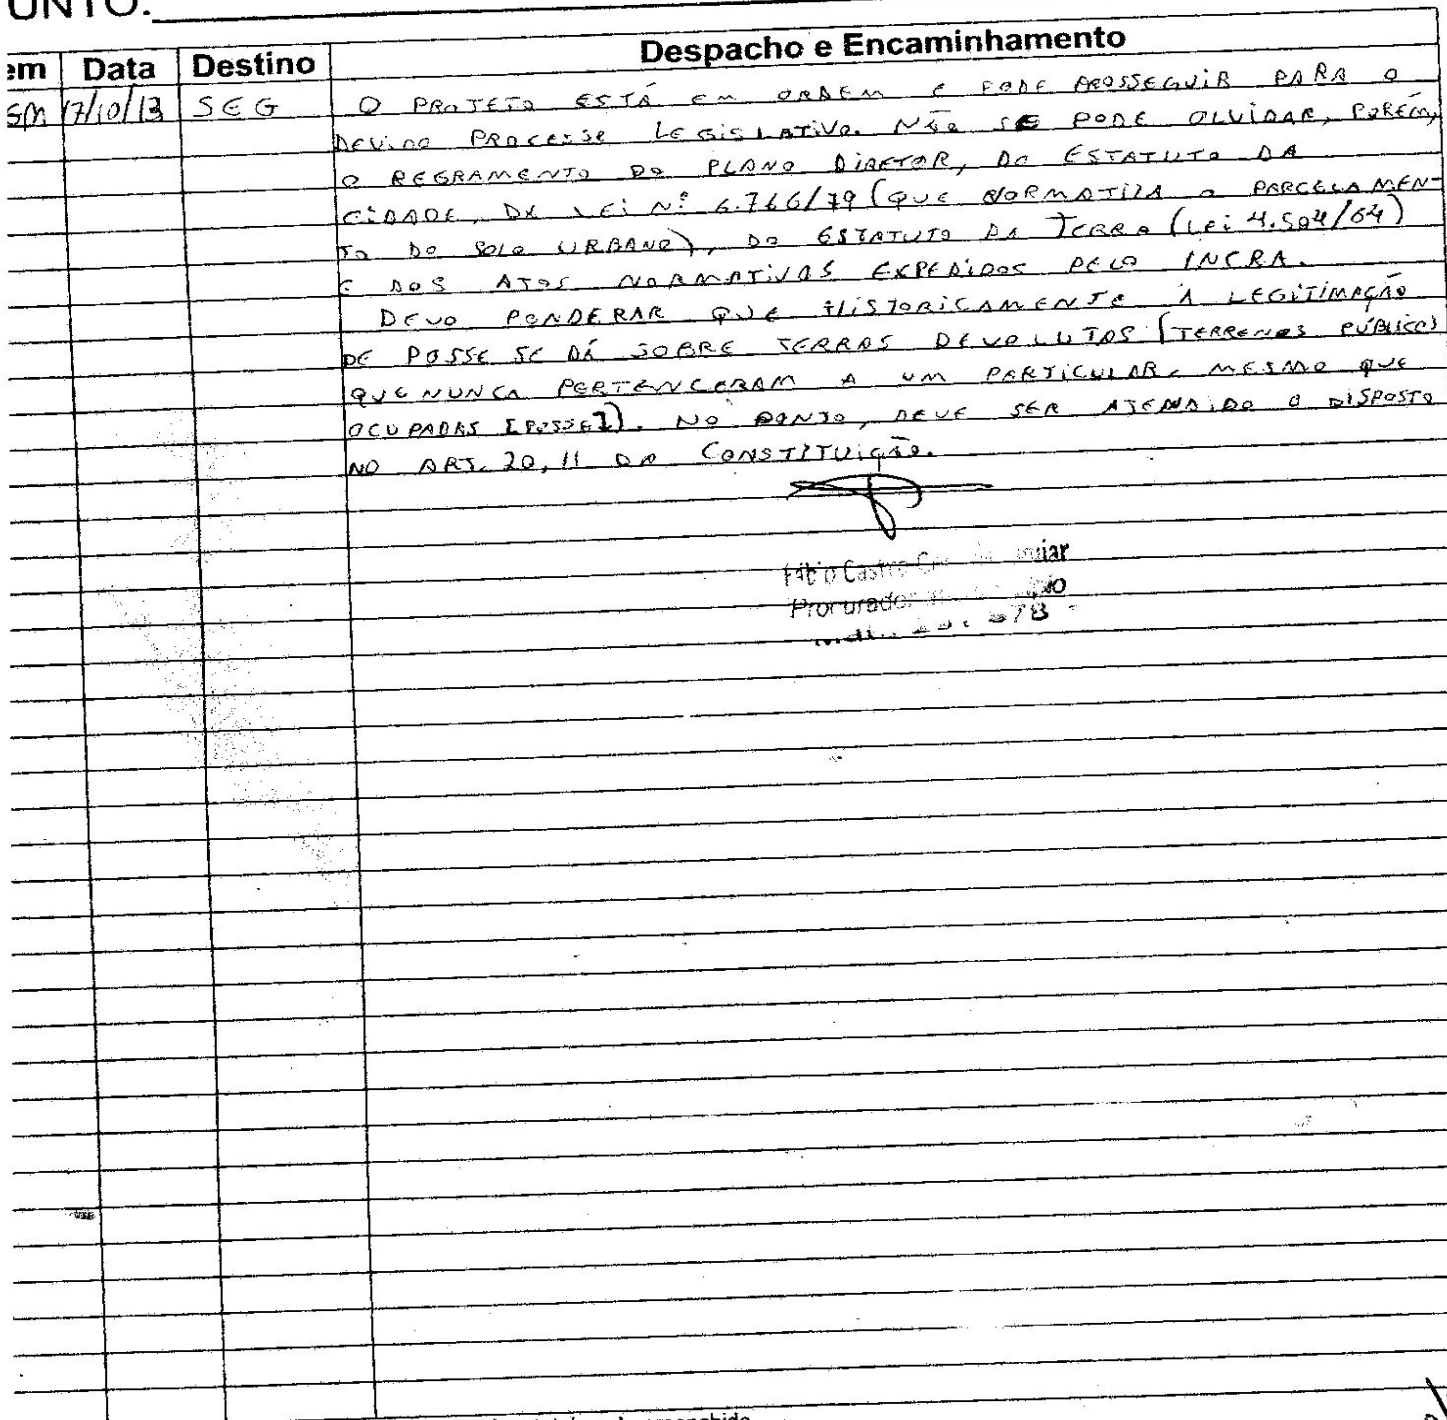 UNTO:
em Data Destino Despacho e Encaminhamento
SM 17/10/13 SEG O PROJETO ESTÁ EM ORDEM E PODE PROSSEGUIR PARA O
DEVIDO PROCESSO LEGISLATIVO. NÃO SE PODE OLVIDAR, PORÉM,
O REGRAMENTO DO PLANO DIRETOR, DO ESTATUTO DA
CIDADE, DA LEI Nº 6.766/79 (QUE NORMATIZA O PARCELAMEN-
TO DO SOLO URBANO), DO ESTATUTO DA TERRA (LEI 4.504/64)
E DOS ATOS NORMATIVOS EXPEDIDOS PELO INCRA.
DEVO PONDERAR QUE HISTORICAMENTE A LEGITIMAÇÃO
DE POSSE SE DÁ SOBRE TERRAS DEVOLUTAS (TERRENOS PÚBLICOS
QUE NUNCA PERTENCERAM A UM PARTICULAR, MESMO QUE
OCUPADAS [POSSE]). NO PONTO, DEVE SER ATENDIDO O DISPOSTO
NO ART. 20, II DA CONSTITUIÇÃO.
Fábio Castro
Procurador